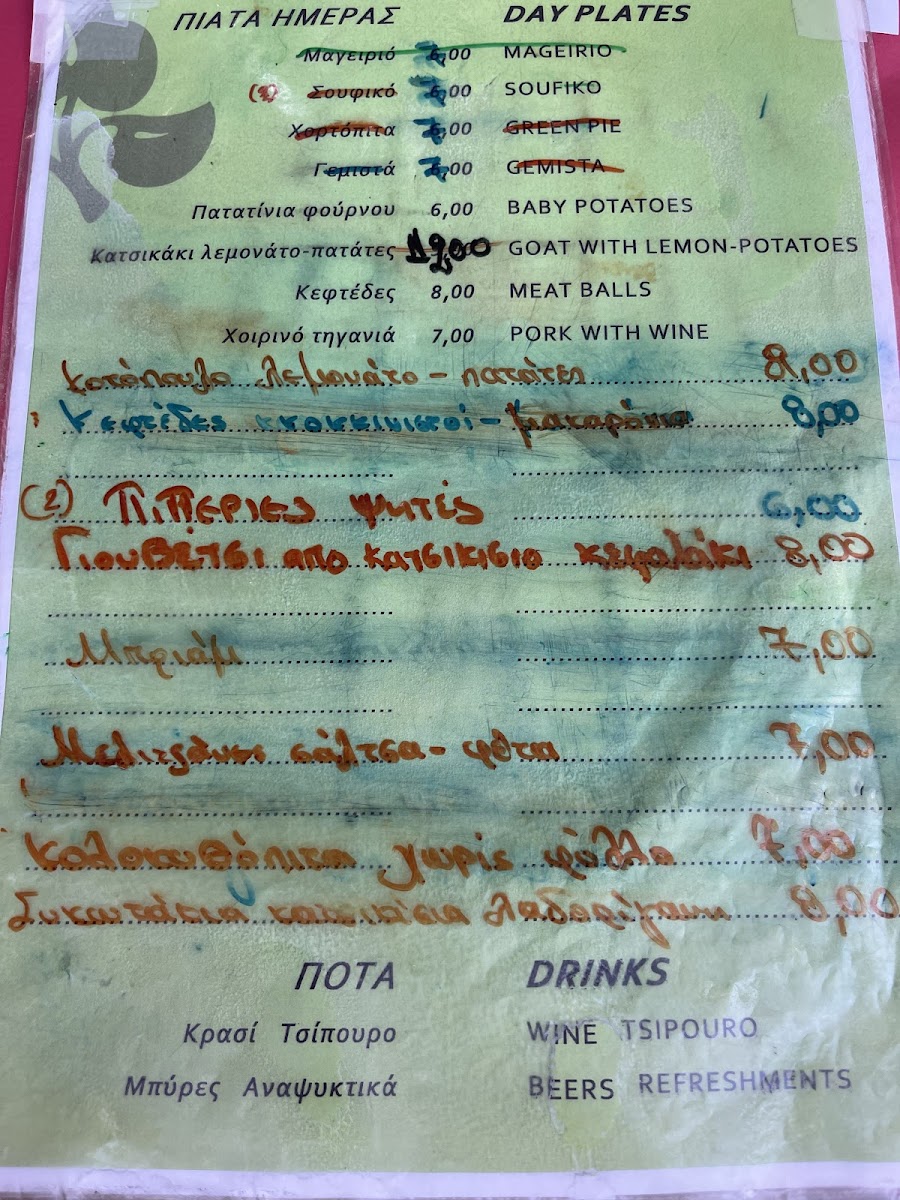 ΠΙΑΤΑ ΗΜΕΡΑΣ DAY PLATES
Μαγειριό 7,00 MAGEIRIO
(2) Σουφικό 7,00 SOUFIKO
Χορτόπιτα 7,00 GREEN PIE
Γεμιστά 7,00 GEMISTA
Πατατίνια φούρνου 6,00 BABY POTATOES
Κατσικάκι λεμονάτο-πατάτες 12,00 GOAT WITH LEMON-POTATOES
Κεφτέδες 8,00 MEAT BALLS
Χοιρινό τηγανιά 7,00 PORK WITH WINE
Κοτόπουλο λεμονάτο - πατάτες 8,00
Κεφτέδες κοκκινιστοί - μακαρόνια 8,00
(2) ΠιΠΕΡΙΕΣ ψητές 6,00
ΓιουΒΕΤΣΙ απο κατσικισιο κεφαλάκι 8,00
Μπριάμ 7,00
Μελιτζάνες σάλτσα - φέτα 7,00
Κολοκυθόπιτα χωρίς φύλλο 7,00
Συκωτάκια κατσικίσια λαδορίγανη 8,00
ΠΟΤΑ DRINKS
Κρασί Τσίπουρο WINE TSIPOURO
Μπύρες Αναψυκτικά BEERS REFRESHMENTS